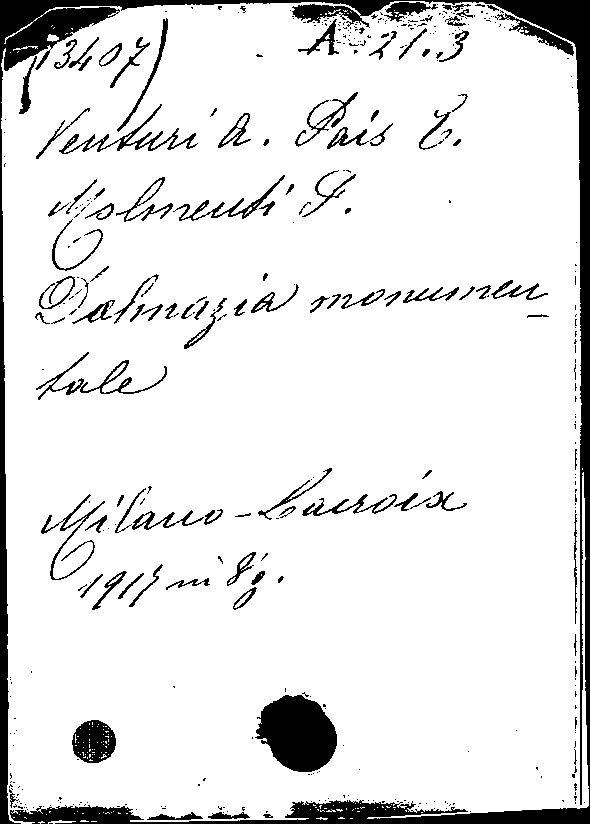 (13407) A. 21.3
Venturi A. Pais E.
Molmenti P.
Dalmazia monumen-
tale
Milano - Lacroix
1917 in 8°g.